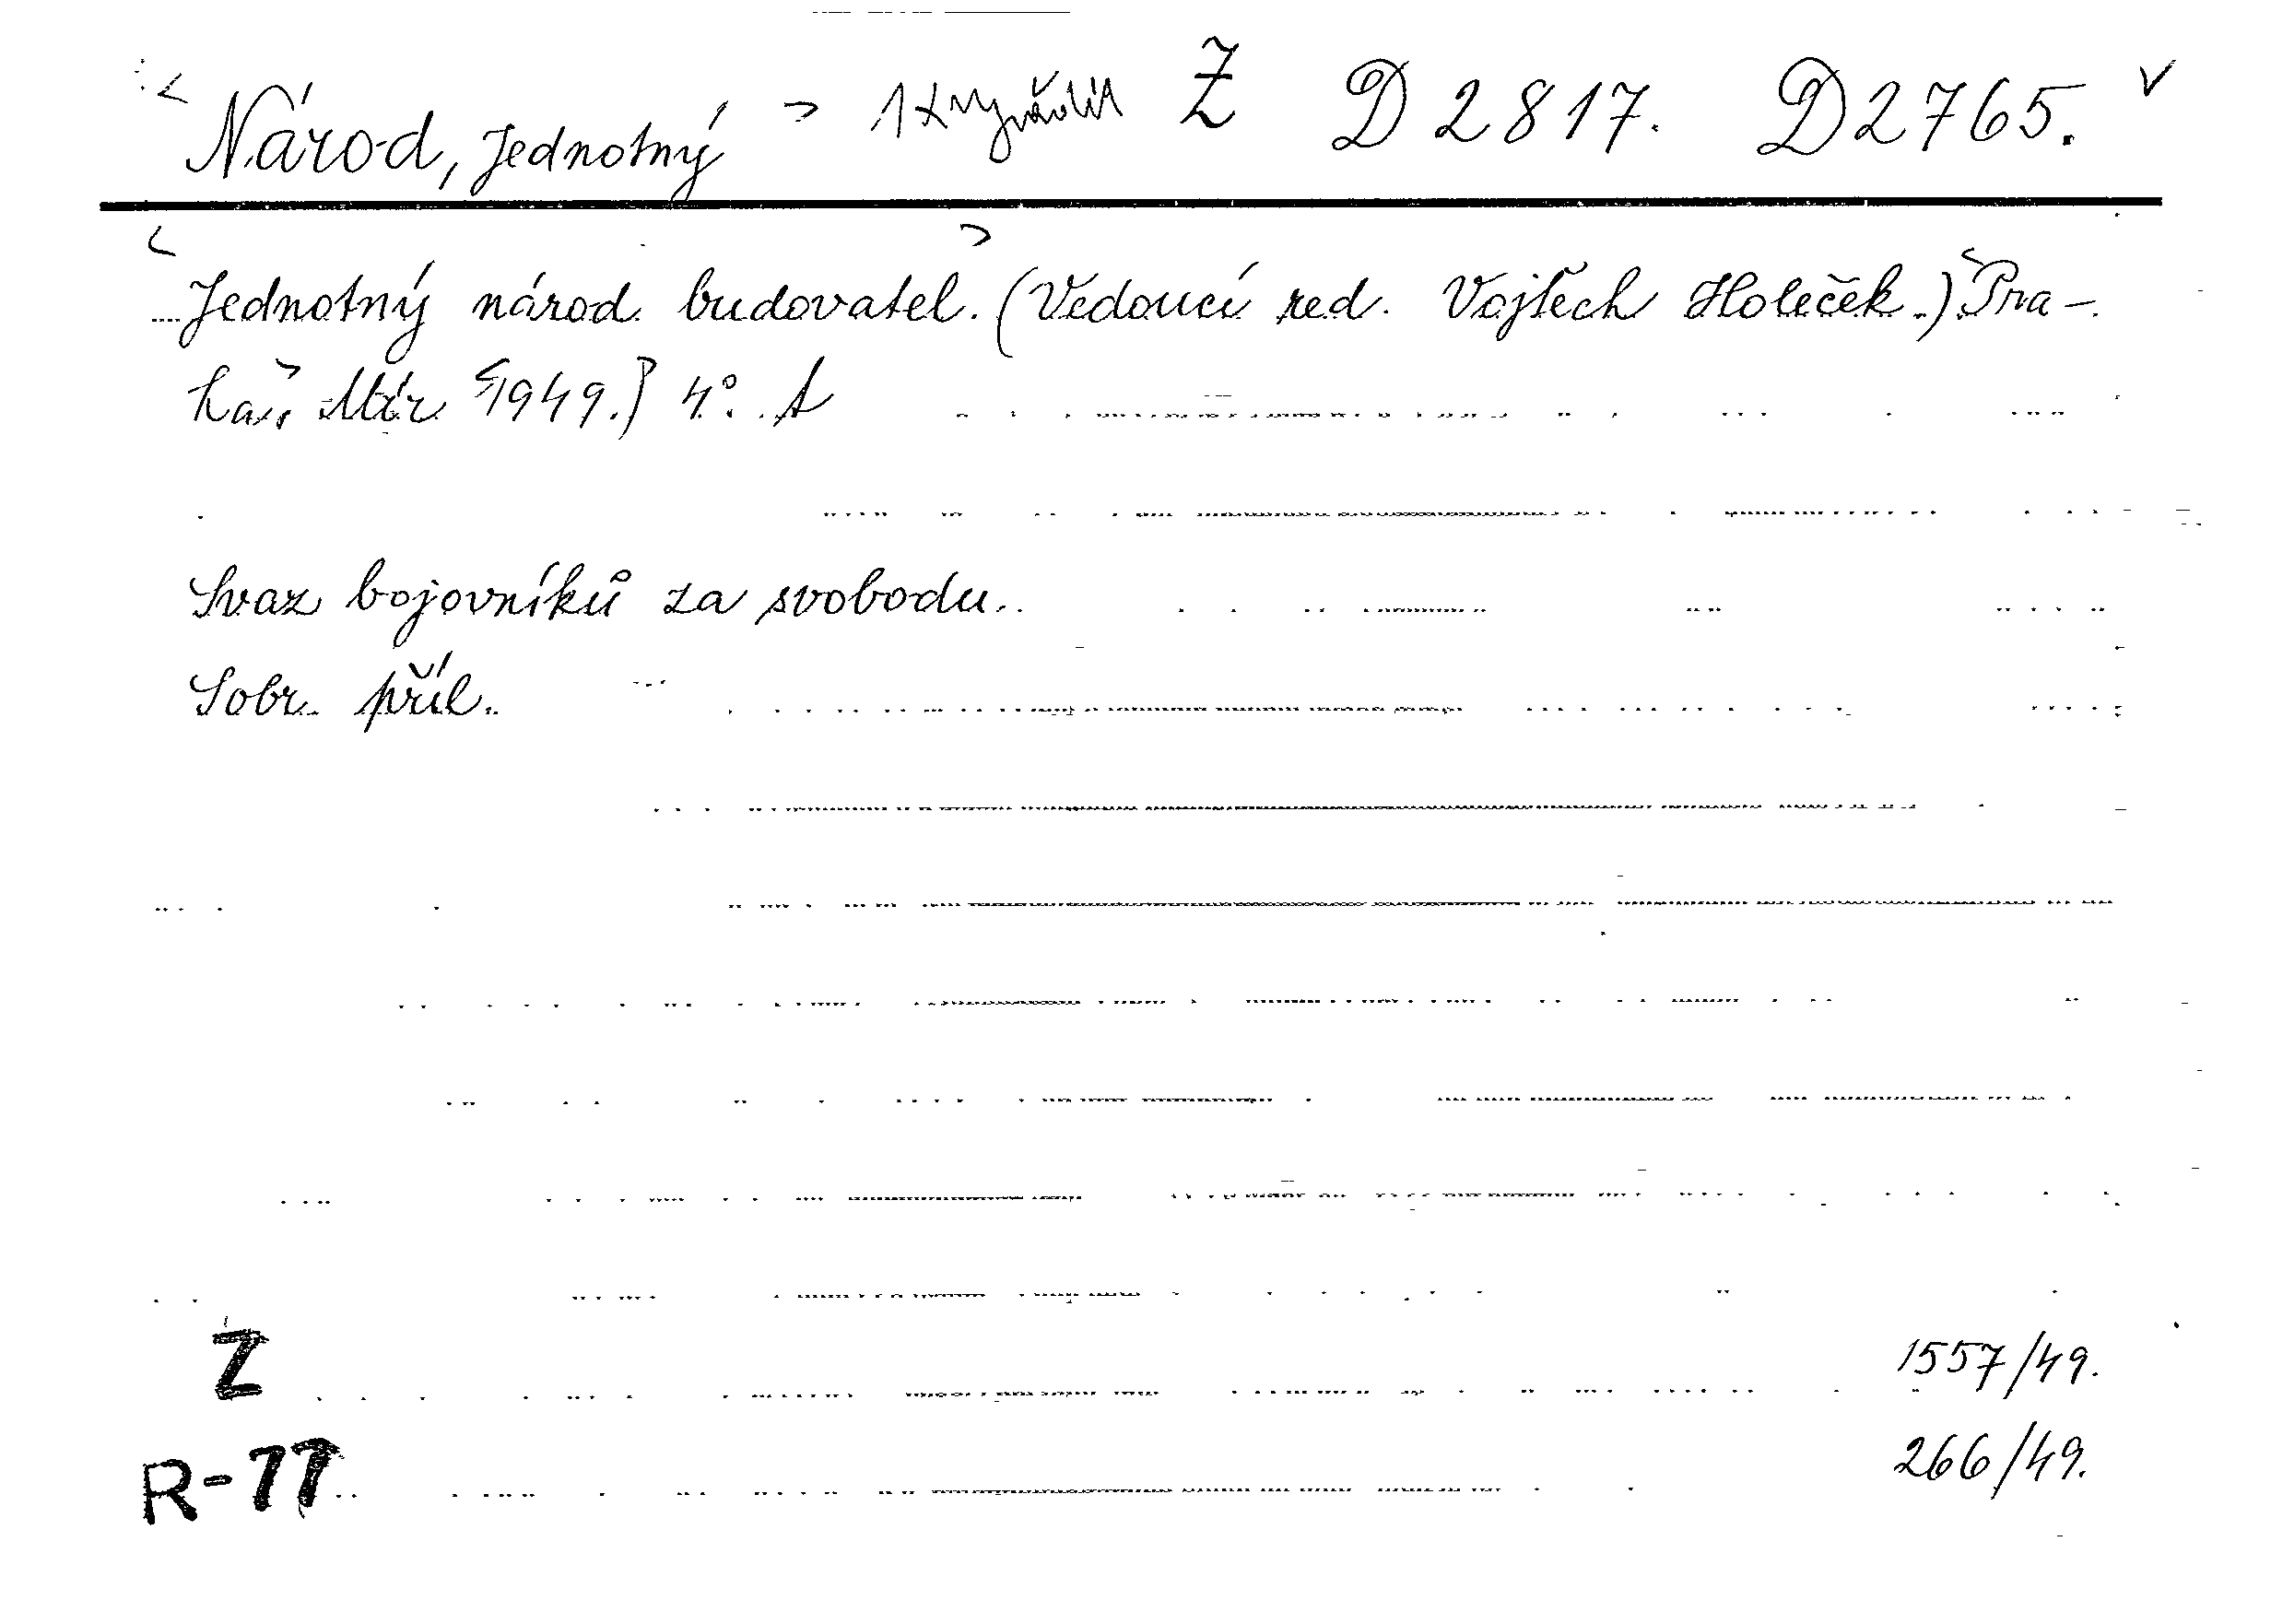 < Národ, Jednotný > 1x Ž D 2817. D 2765. v
< Jednotný národ budovatel. > (Vedoucí red. Vojtěch Holeček.) < Pra-
ha, > Mír < 1949. > 4°. A
Svaz bojovníků za svobodu.
Sobr. příl.
Z 1557/49.
R-77 266/49.